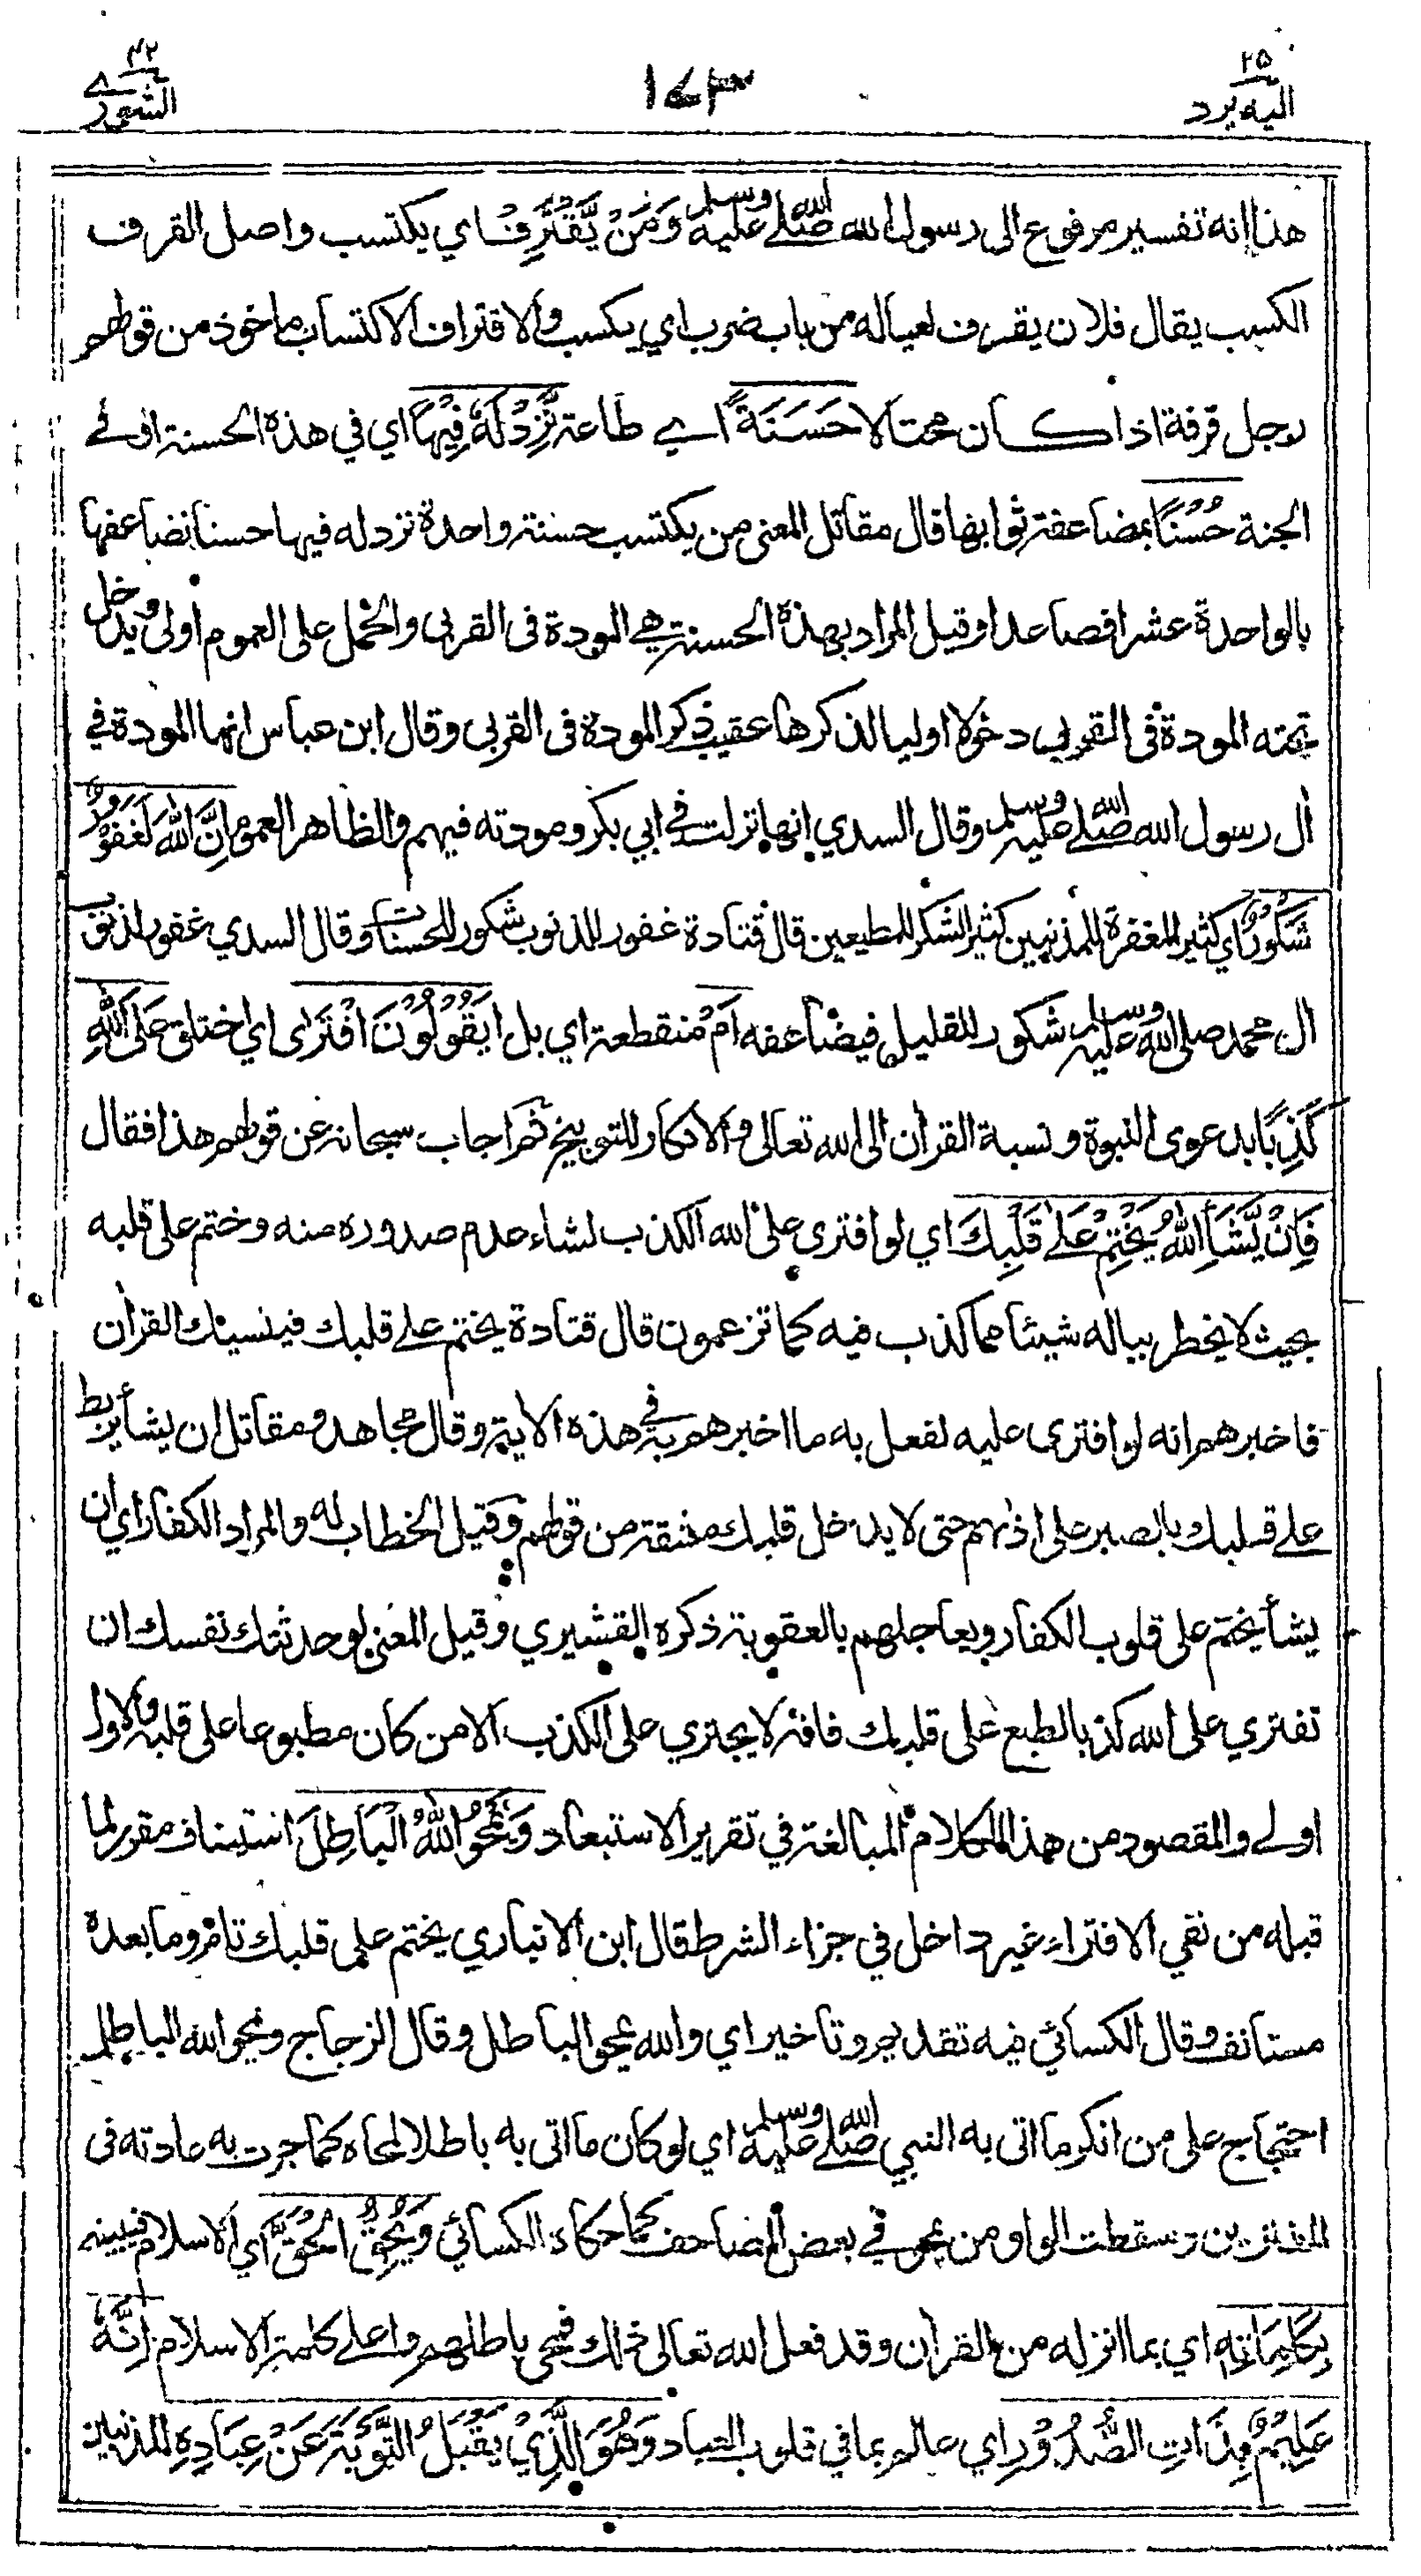 ٢٥
اليه يرد
١٤٣
٤٢
الشورے
هذا إنه تفسير مرفوع الى رسول الله صلى الله عليه وسلم وَمَنْ يَّقْتَرِفْ اي يكتسب واصل القرف
الكسب يقال فلان يقرف لعياله من باب ضرب اي يكسب والاقتراف الاكتساب ماخوذ من قولهم
رجل قرفة اذا كان محتالا حَسَنَةً اي طاعة نَّزِدْ لَهٗ فِيْهَا اي في هذه الحسنة او في
الجنة حُسْنًا بمضاعفة ثوابها قال مقاتل المعنى من يكتسب حسنة واحدة نزد له فيها حسنا نضاعفها
بالواحدة عشرا فصاعدا وقيل المراد بهذه الحسنة هي المودة فى القربى والحمل على العموم اولى ويدخل
تحته المودة فى القربى دخولا اوليا لذكرها عقيب ذكر المودة فى القربى وقال ابن عباس انها المودة في
أل رسول الله صلى الله عليه وسلم وقال السدي انها نزلت في ابي بكر ومودته فيهم والظاهر العموم اِنَّ اللّٰهَ لَغَفُوْرٌ
شَكُوْرٌ اي كثير المغفرة للمذنبين كثير الشكر للمطيعين قال قتادة غفور للذنوب شكور للحسنات وقال السدي غفور لذنوب
ال محمد صلى الله عليه وسلم شكور للقليل فيضاعفه اَمْ منقطعة اي بل ا يَقُوْلُوْنَ افْتَرٰى اي اختلق عَلَى اللّٰهِ
كَذِبًا بدعوى النبوة ونسبة القرأن الى الله تعالى والانكار للتوبيخ ثم اجاب سبحانه عن قولهم هذا فقال
فَاِنْ يَّشَاِ اللّٰهُ يَخْتِمْ عَلٰى قَلْبِكَ اي لو افترى على الله الكذب لشاء عدم صدوره منه وختم على قلبه
بحيث لا يخطر بباله شيئا مما كذب فيه كما تزعمون قال قتادة يختم على قلبك فينسيك القرأن
فاخبرهم انه لو افترى عليه لفعل به ما اخبرهم به في هذه الاية وقال مجاهد ومقاتل ان يشأ يربط
على قلبك بالصبر على اذٰهم حتى لا يدخل قلبك مشقة من قولهم وقيل الخطاب له والمراد الكفار اي ان
يشأ يختم على قلوب الكفار ويعاجلهم بالعقوبة ذكره القشيري وقيل المعنى لو حدثتك نفسك ان
تفتري على الله كذبا لطبع على قلبك فانه لا يجتري على الكذب الا من كان مطبوعا على قلبه والاول
اولى والمقصود من هذا الكلام المبالغة في تقرير الاستبعاد وَيَمْحُ اللّٰهُ الْبَاطِلَ استيناف مقرر لما
قبله من نفي الافتراء غير داخل في جزاء الشرط قال ابن الانباري يختم على قلبك تام وما بعده
مستانف وقال الكسائي فيه تقديم وتاخير اي والله يمحو الباطل وقال الزجاج ويمحو الله الباطل
احتجاج على من انكر ما اتى به النبي صلى الله عليه وسلم اي لو كان ما اتى به باطلا لمحاه كما جرت به عادته فى
المفترين وسقطت الواو من يمحو في بعض المصاحف كما حكاه الكسائي وَيُحِقُّ الْحَقَّ اي الاسلام فيبينه
بِكَلِمَاتِهٖ اي بما انزله من القرأن وقد فعل الله تعالى ذلك فمحى باطلهم واعلى كلمة الاسلام اِنَّهٗ
عَلِيْمٌ بِذَاتِ الصُّدُوْرِ اي عالم بما في قلوب العباد وَهُوَ الَّذِيْ يَقْبَلُ التَّوْبَةَ عَنْ عِبَادِهٖ للمذنبين